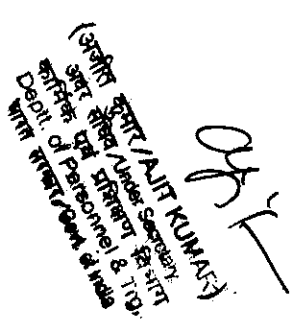 (अजीत कुमार/AJIT KUMAR)
अवर सचिव/Under Secretary
कार्मिक एवं प्रशिक्षण विभाग
Deptt. of Personnel & Trg.
भारत सरकार/Govt. of India